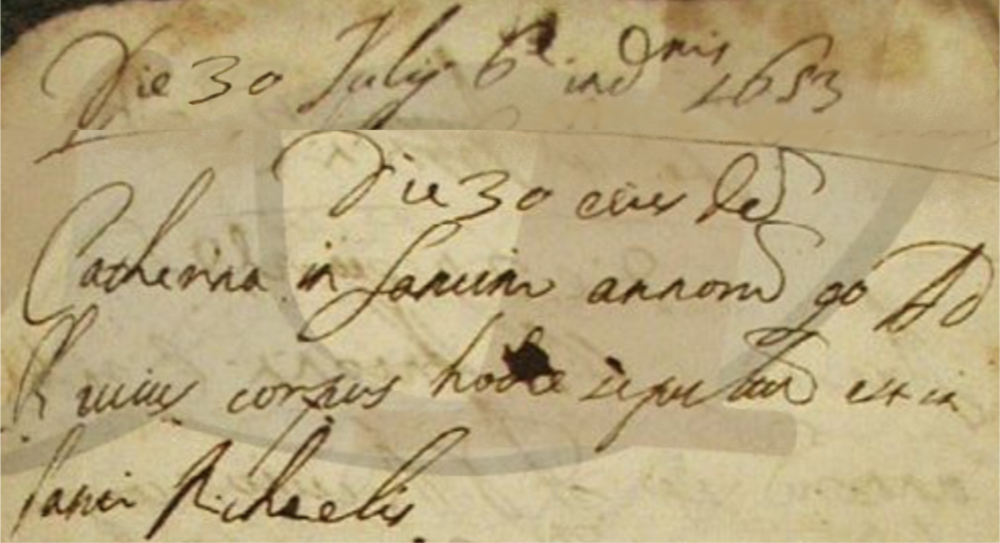 Die 30 July 6e ind dnis 1653
Die 30 eius ded
Catherina in annord 90
cuius corpus hodie sepultud est in
Michaelis